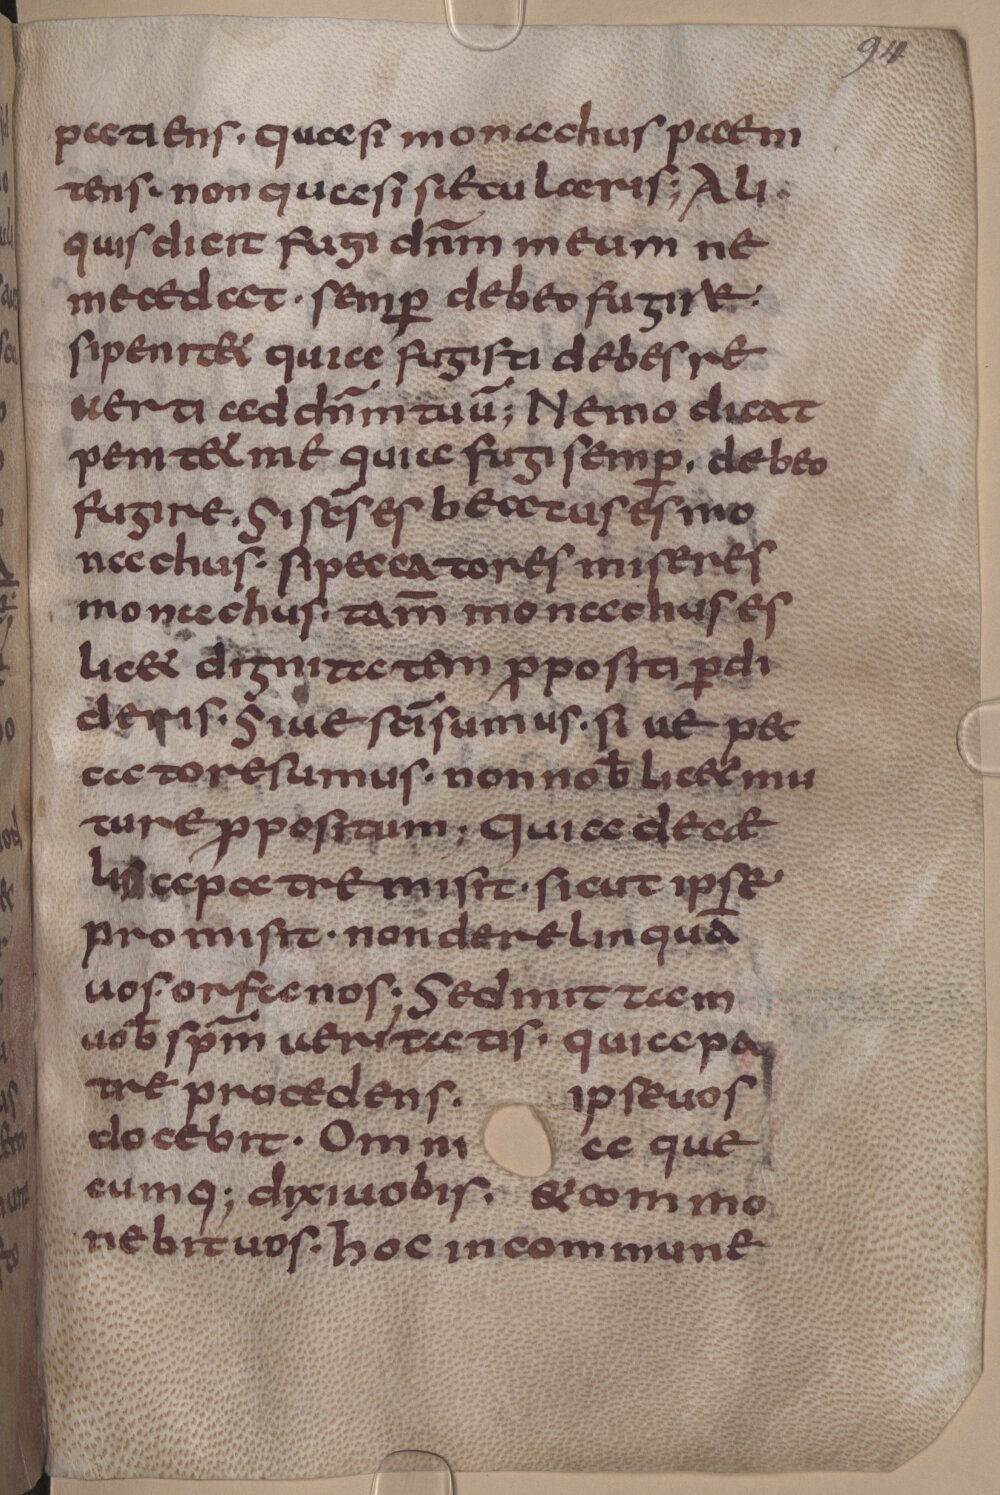 94
patiens. quasi monachus paeni
tens. non quasi sęcularis; Ali
quis dicit fugi dn̄m meum ne
me cędat. semꝑ debeo fugire.
si penitet quia fugisti debes re
uerti ad dn̄m tuū; Nemo dicat
penitet me quia fugi semꝑ. debeo
fugire. Si sc̄s es beatus es mo
nachus. si peccator es miser es
monachus. tam̄ monachus es
licet dignitatem ꝓpositi ꝑdi
deris. Siue sc̄i sumus. siue pec
catores sumus. non nob̄ licet mu
tare ꝓpositum; Quia de cę
lis a patre misit. sicut ipse
promisit. non derelinquā
uos orfanos; Sed mittam
uob̄ sp̄m ueritatis. qui a pa
tre procedens. ipse uos
docebit. Omnia que
cumq; dixi uobis. & commo
nebit uos. hoc in commune